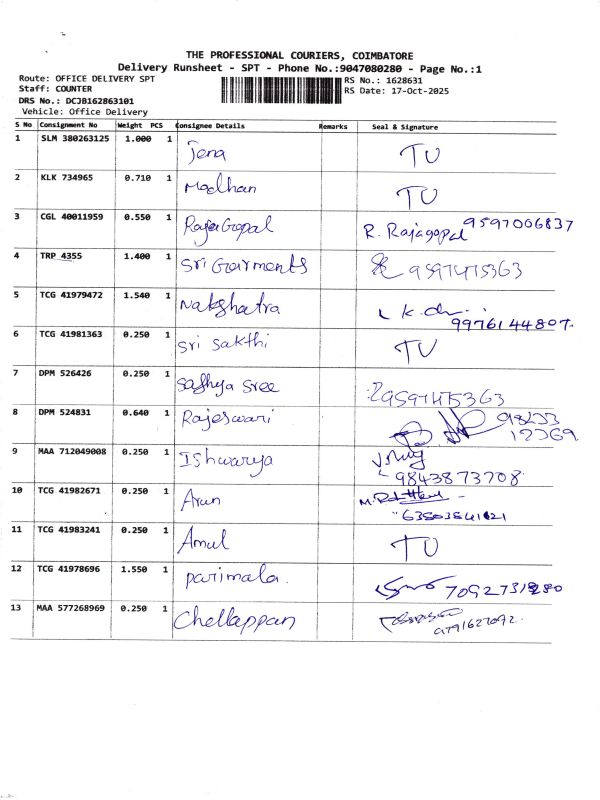 THE PROFESSIONAL COURIERS, COIMBATORE
Delivery Runsheet - SPT - Phone No.:9047080280 - Page No.:1
Route: OFFICE DELIVERY SPT RS No.: 1628631
Staff: COUNTER RS Date: 17-Oct-2025
DRS No.: DCJB162863101
Vehicle: Office Delivery
S No Consignment No Weight PCS Consignee Details Remarks Seal & Signature
1 SLM 380263125 1.000 1 Jena TU
2 KLK 734965 0.710 1 Madhan TU
3 CGL 40011959 0.550 1 RajaGopal R. Rajagopal 9597006837
4 TRP 4355 1.400 1 Sri Garments 9597475363
5 TCG 41979472 1.540 1 Nakshatra
9976144807
6 TCG 41981363 0.250 1 Sri Sakthi TU
7 DPM 526426 0.250 1 Sathya Sree 9597475363
8 DPM 524831 0.640 1 Rajeswari 98233
12369
9 MAA 712049008 0.250 1 Ishwarya
9843873708
10 TCG 41982671 0.250 1 Arun
11 TCG 41983241 0.250 1 Amul TU
12 TCG 41978696 1.550 1 Parimala.
13 MAA 577268969 0.250 1 Chellappan
9791627092